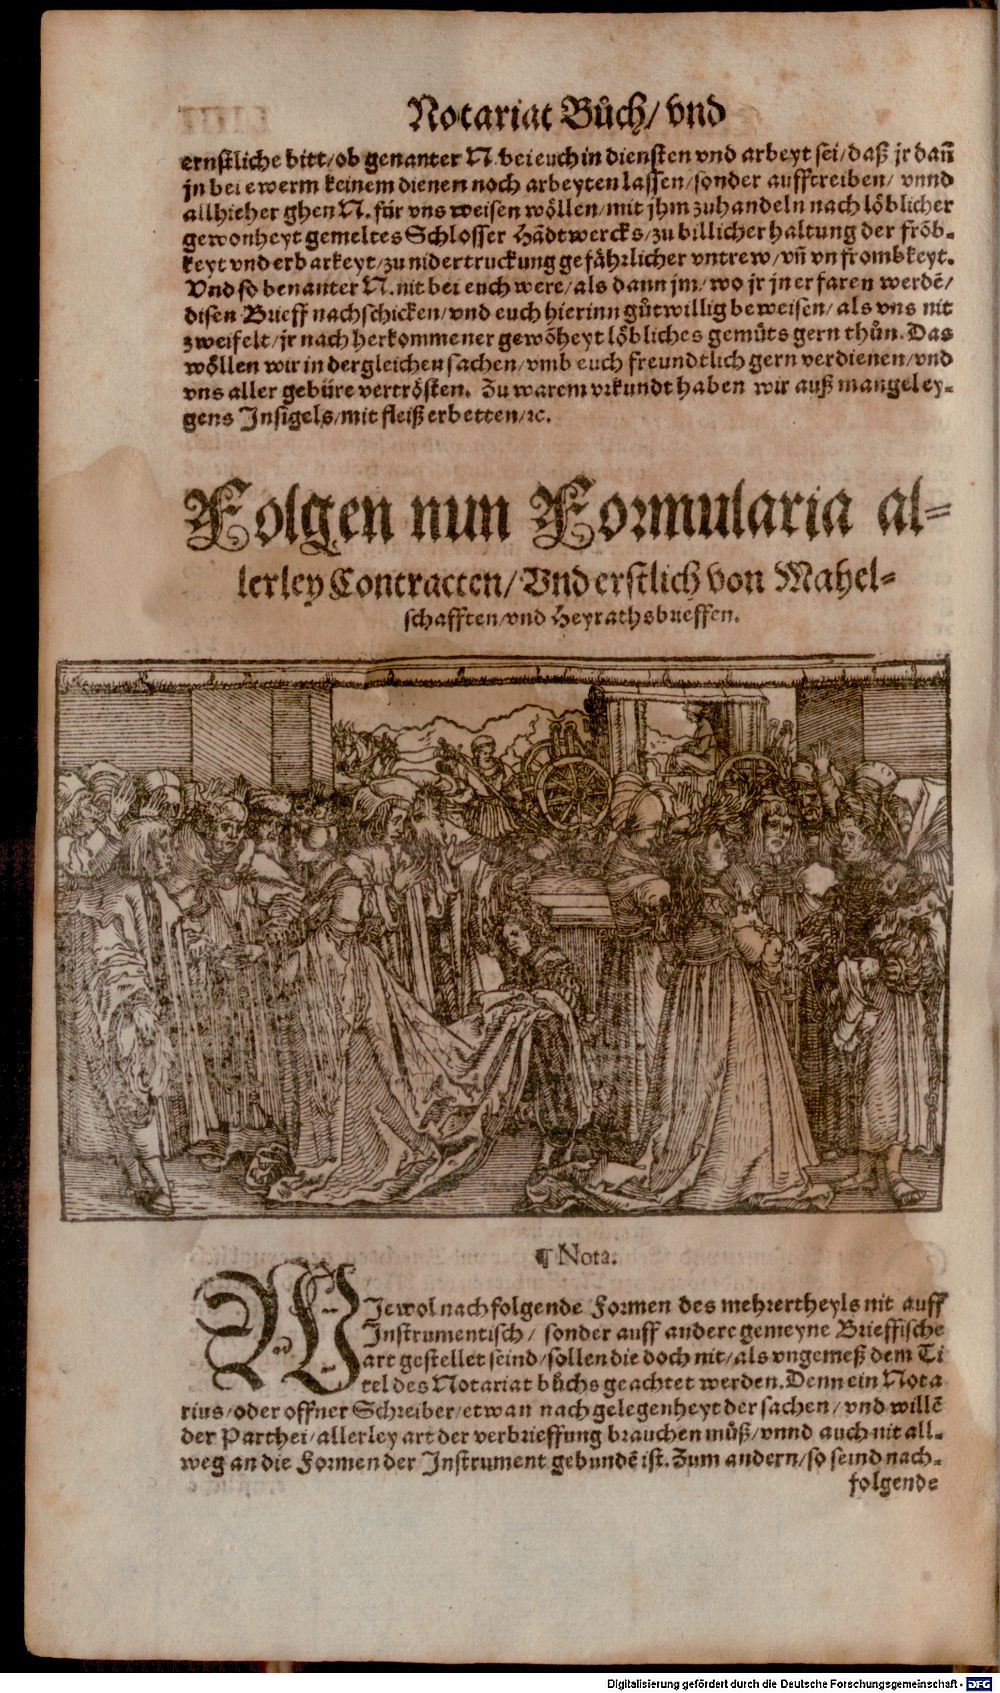 Notariat Bůch/ vnd
ernstliche bitt/ ob genanter N. bei euch in diensten vnd arbeyt sei/ daß jr dañ
jn bei ewerm keinem dienen noch arbeyten lassen/ sonder aufftreiben/ vnnd
allhieher ghen N. für vns weisen wöllen/ mit jhm zuhandeln nach löblicher
gewonheyt gemeltes Schlosser Hãdtwercks/ zu billicher haltung der fröb-
keyt vnd erbarkeyt/ zu nidertruckung gefährlicher vntrew/ vñ vnfrombkeyt.
Vnd so benanter N. nit bei euch were/ als dann jm/ wo jr jn erfaren werdẽ/
disen Brieff nachschicken/ vnd euch hierinn gůtwillig beweisen/ als vns nit
zweifelt/ jr nach herkommener gewõheyt löbliches gemüts gern thůn. Das
wöllen wir in dergleichen sachen/ vmb euch freundtlich gern verdienen/ vnd
vns aller gebüre vertrösten. Zu warem vrkundt haben wir auß mangel ey-
gens Insigels/ mit fleiß erbetten/ ꝛc.
Folgen nun Formularia al-
lerley Contracten/ Vnd erstlich von Mahel-
schafften/ vnd Heyrathsbrieffen.
¶ Nota.
WIewol nachfolgende Formen des mehrertheyls nit auff
Instrumentisch/ sonder auff andere gemeyne Brieffische
art gestellet seind/ sollen die doch nit/ als vngemeß dem Ti
tel des Notariat bůchs geachtet werden. Denn ein Nota
rius/ oder offner Schreiber/ etwan nach gelegenheyt der sachen/ vnd willẽ
der Parthei/ allerley art der verbrieffung brauchen můß/ vnnd auch nit all-
weg an die Formen der Instrument gebundẽ ist. Zum andern/ so seind nach-
folgende
Digitalisierung gefördert durch die Deutsche Forschungsgemeinschaft - DFG